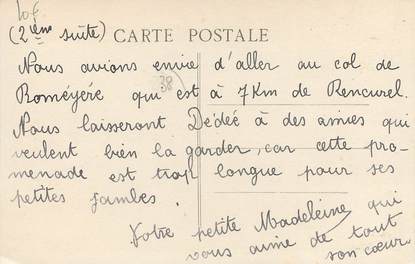 10f
(2ième suite) CARTE POSTALE
Nous avions envie d'aller au col de
Roméyéré qui est à 7 Km de Rencurel.
38
Nous laisseront Dédée à des amies qui
veulent bien la garder, car cette pro-
menade est trop longue pour ses
petites jambes.
Votre petite Madeleine qui
vous aime de tout
son cœur